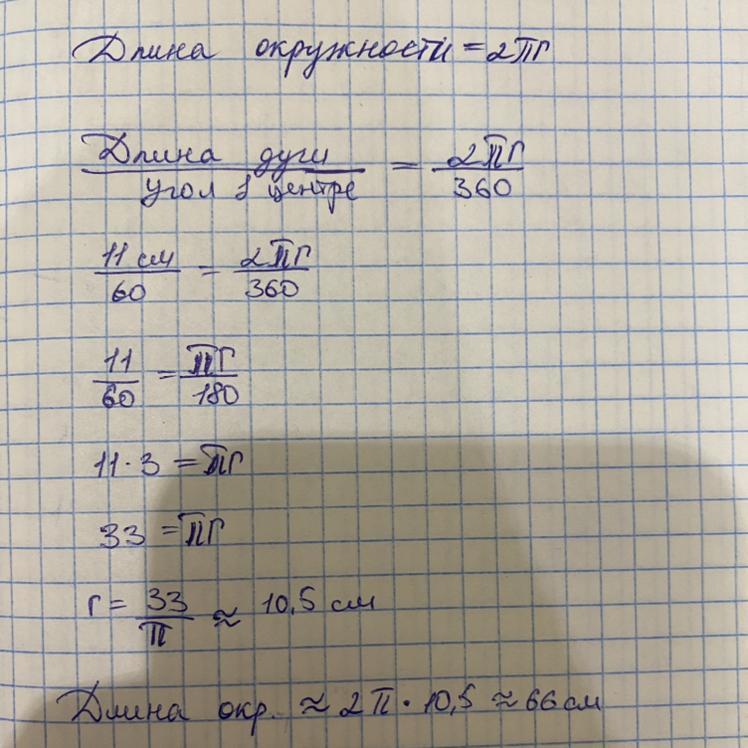 Длина окружности = 2πr
Длина дуги / угол в центре = 2πr / 360
11 см / 60 = 2πr / 360
11 / 60 = πr / 180
11 · 3 = πr
33 = πr
r = 33 / π ≈ 10,5 см
Длина окр. ≈ 2π · 10,5 ≈ 66 см